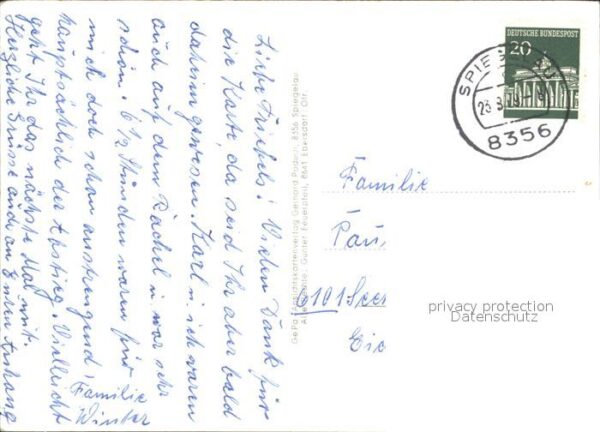 Liebe Friebels! Vielen Dank für
die Karte, da seid Ihr aber bald
daheim gewesen. Karl u. ich waren
auch auf dem Rachel u. war sehr
schön. 6 1/2 Stunden waren für
mich doch schon anstrengend,
hauptsächlich der Abstieg. Vielleicht
geht Ihr das nächste Mal mit.
Herzliche Grüsse auch an Euren Anhang
Familie
Winter
Ge.Pa. Ansichtskartenverlag Gerhard Paduch, 8356 Spiegelau
Gunter Feuerpfeil, 8641 Ebersdorf Ofr.
DEUTSCHE BUNDESPOST
20
SPIEGELAU
23.8.
8356
Familie
Pau
6101 See
Eic
privacy protection
Datenschutz